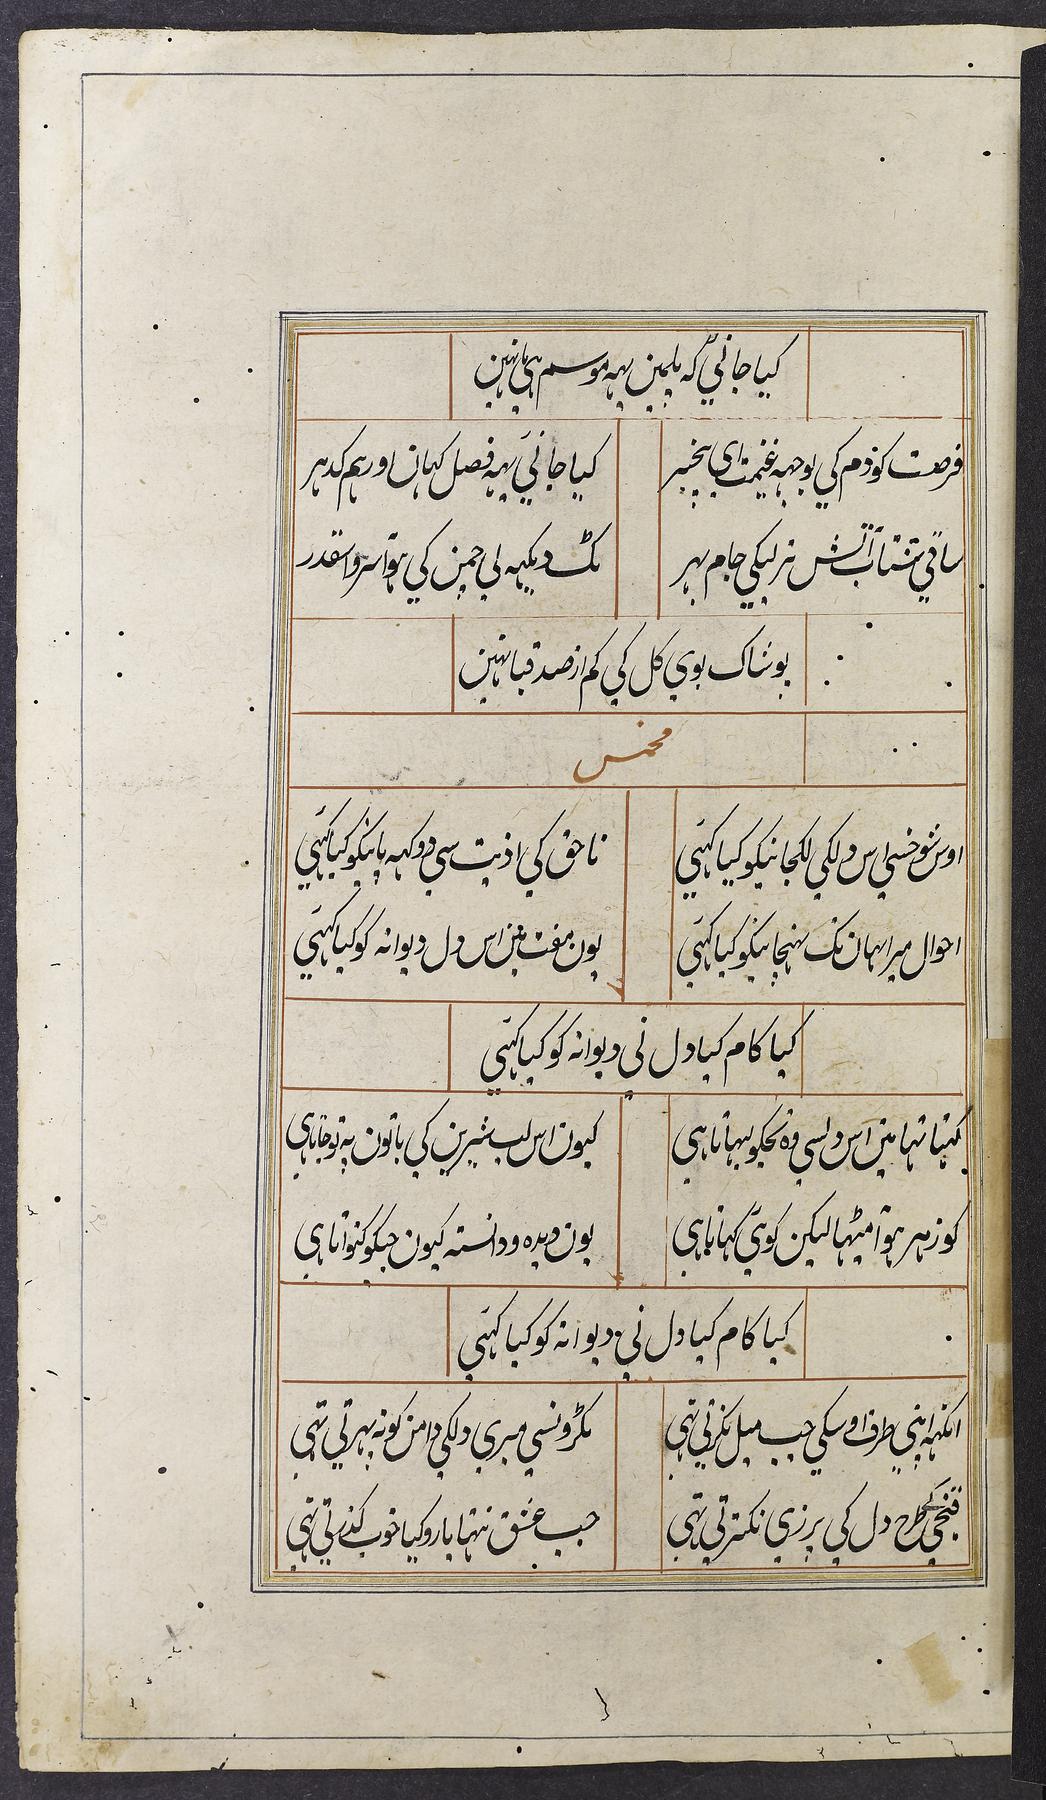 کیا جانیٔ کہ پلمین یہہ موسم ہی یا نہین
فرصت کو دم کی بوجہہ غنیمت ای بیخبر
کیا جانیٔ یہہ فصل کہان اور ہم کدہر
ساقی شتاب آتش تر لیکی جام بہر
ٹک دیکہہ لی چمن کی ہوا سرو اسقدر
پوشاک بوی گل کی کم از صد قبا نہین
مخمس
اوس شوخ سی اس دلکی لگجانیکو کیا کہیٔی
ناحق کی اذیت سی دوکہہ پانیکو کیا کہیٔی
احوال میرا یہان تک پہنچانیکو کیا کہیٔی
یون مفت مین اس دل دیوانہ کو کیا کہیٔی
کیا کام کیا دل نی دیوانہ کو کیا کہیٔی
کہتا تہا مین اس دلسی وہ تجکو لبہاتا ہی
کیون اس لب شیرین کی باتون پہ تو جاتا ہی
کو زہر ہوا میٹہا لیکن کویٔی کہاتا ہی
یون دیدہ و دانستہ کیون جیکو گنواتا ہی
کیا کام کیا دل نی دیوانہ کو کیا کہیٔی
انکہہ اپنی طرف اوسکی جب میل نکرتی تہی
ٹکڑونسی میری دلکی دامن کو نہ بہرتی تہی
غنچی کیطرح دل کی پرزی نکترتی تہی
جب عشق نتہا یارو کیا خوب گذرتی تہی